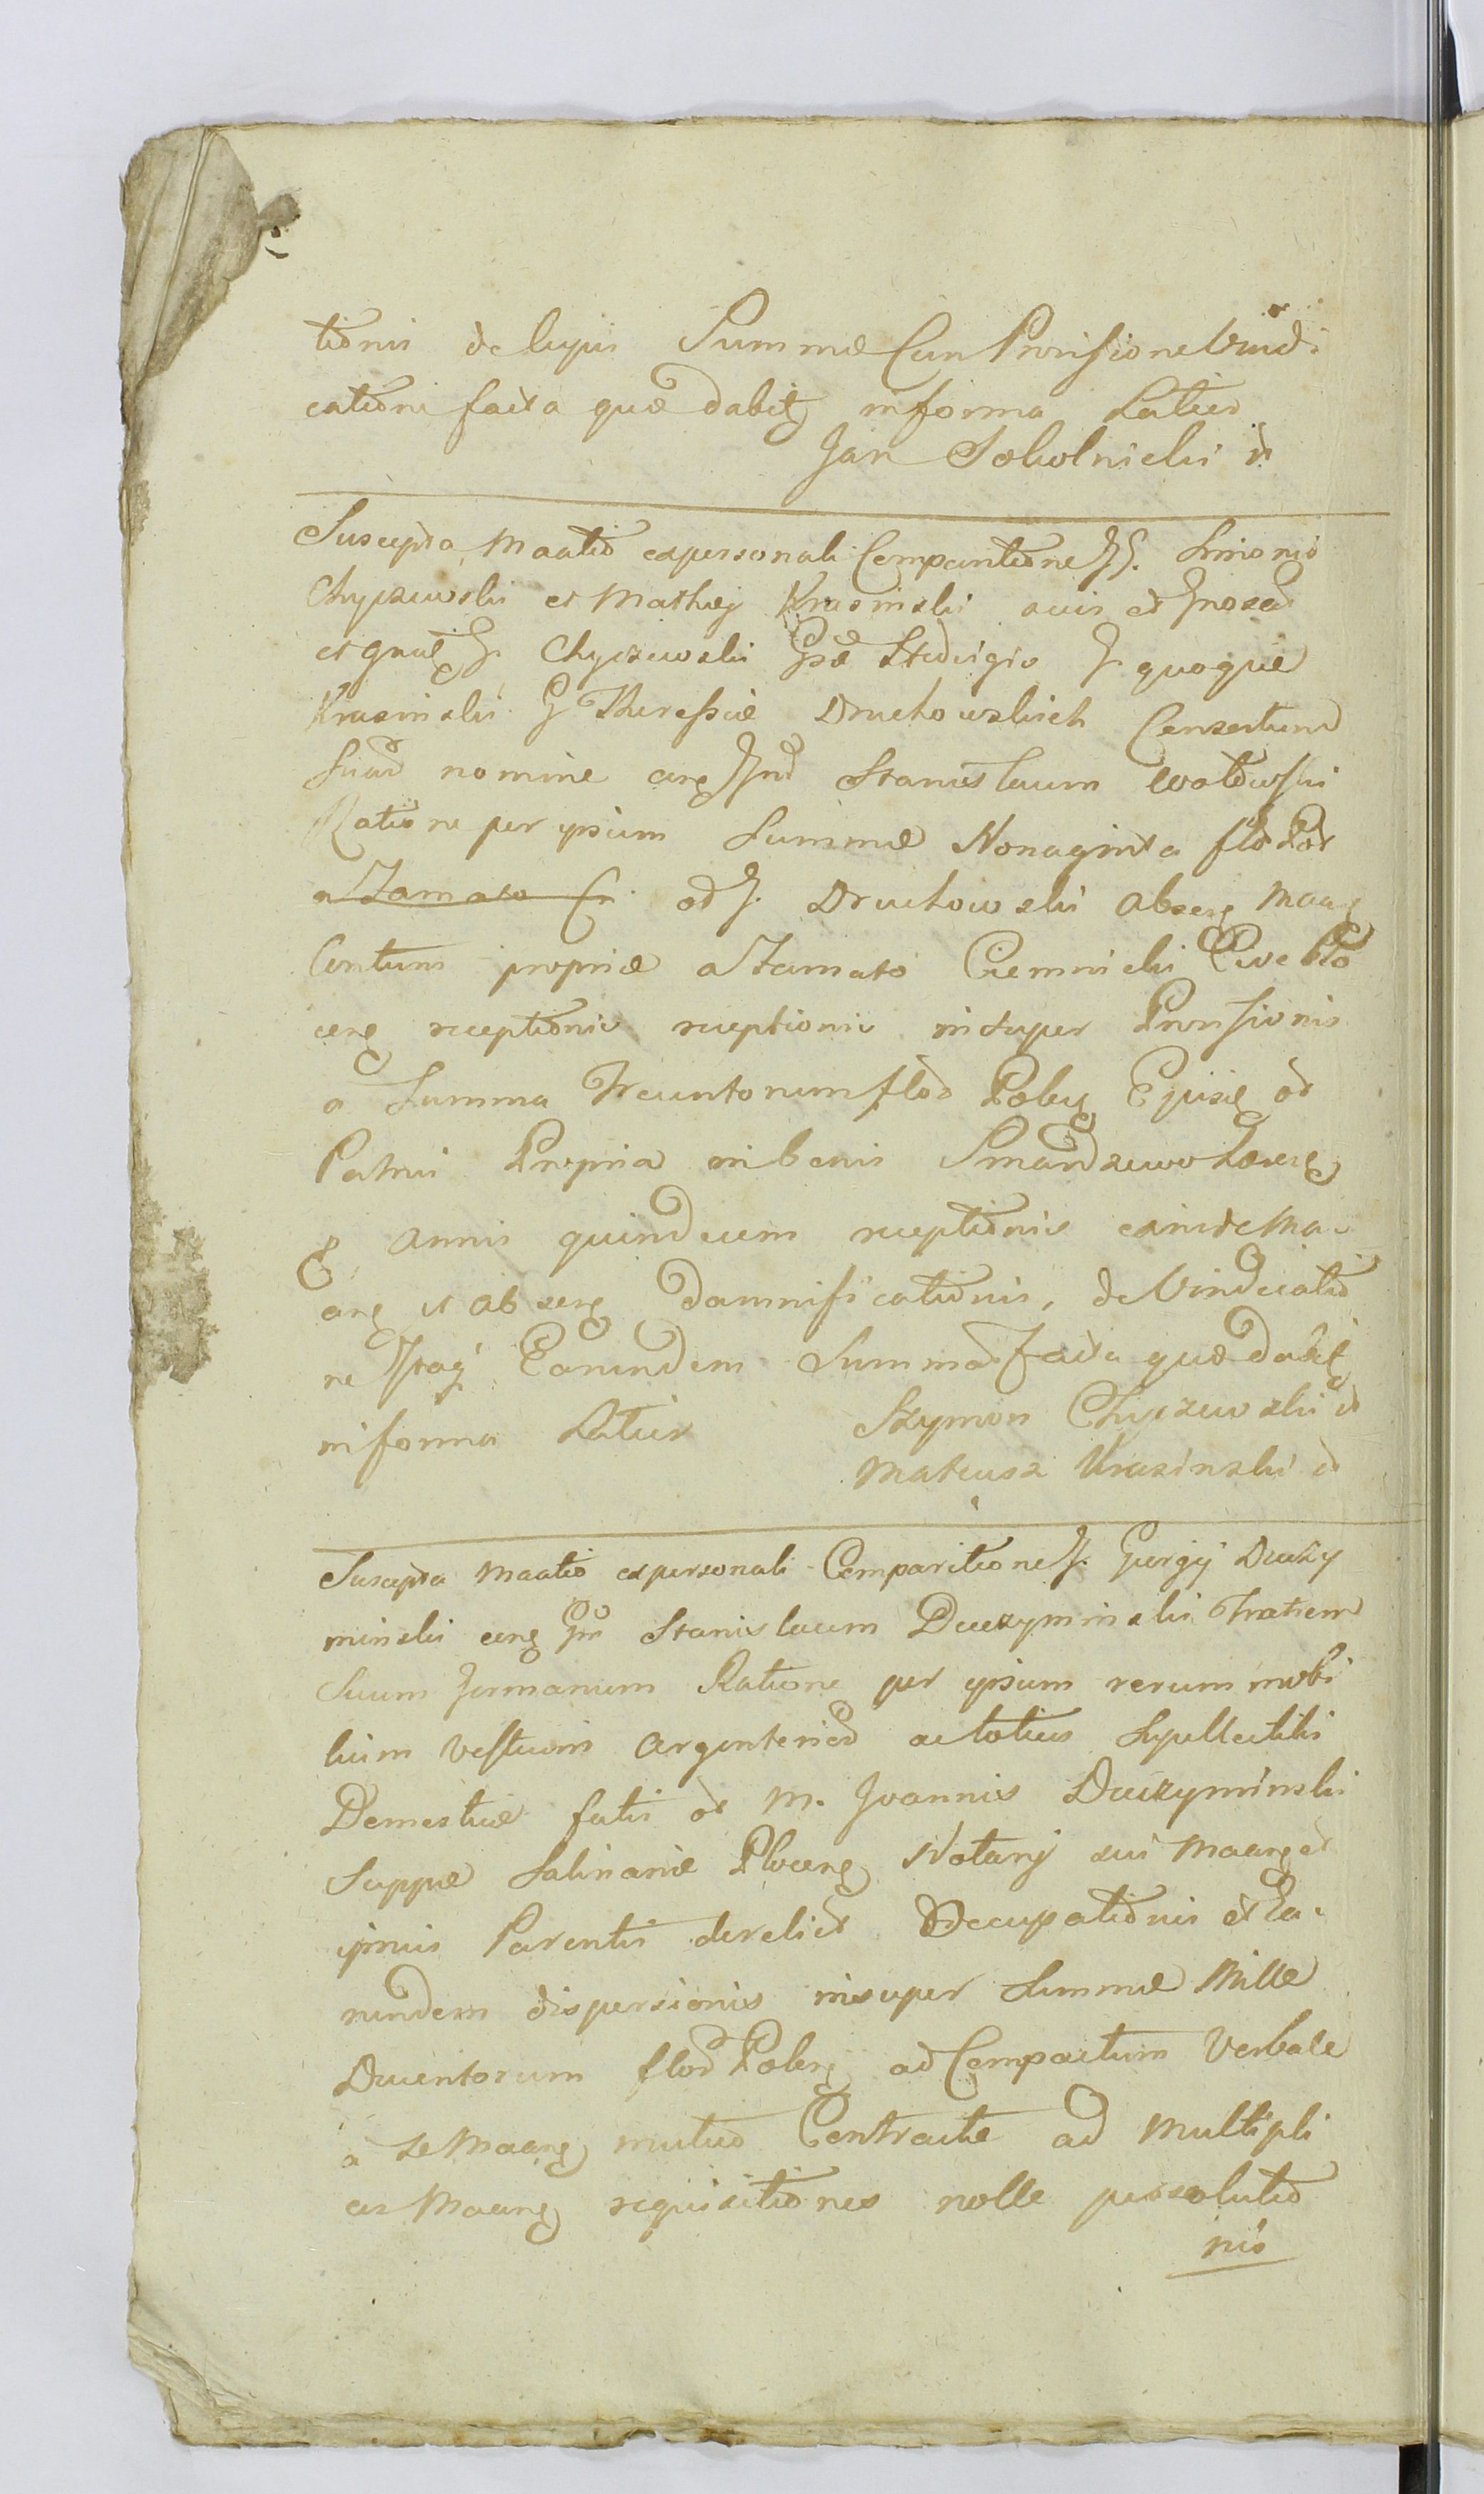 tionis de hujus Summæ Cum Provisione Vindi
catione facta quæ dabitq in forma Latius
Jan Sokolnicki
Suscepta Maatio ex personali Comparitione GG. Simonis
Chyczewski et Mathiæ Krasinski suis et
et G. Chyczewski G. quoque
Krasinski G Theressiæ Druchowskich Consortium
Suar nomine cirq Gnd Stanislaum
Ratione per ipsum Summæ Nonaginta flor Pol
a Famato od G. Druchowski abserq Maarq
Centum propriæ a Famato Ciemnicki Cive
cerq receptionis receptionis insuper Provisionis
a Summa Trecentorum flor Polcq od
Patrui Propria in bonis Smardzewo
annis quindecem receptionis exinde Ma
arq et abserq damnificationis, de Vindicatio
ne Earundem Summar facta quæ dabitq
in forma Latius Szymon Chyczewski
Mateusz Krasinski
Suscepta Maatio ex personali Comparitione G. Georgij Duczy
minski cerq Gm Stanislaum Duczyminski Fratrem
Suum Germanum Ratione per ipsum rerum mobi
lium Vestium Argenteriæ ac totius Supellectilis
Domesticæ fatis od M. Joannis Duczyminski
Suppæ Salinariæ Plocenq Notarij sui Maarq et
ipsius Parentis derelict Occupationis et Ea
rundem dispersionis insuper Summæ Mille
Ducentorum flor Polcrq ad Compactum Verbale
a se Maarq mutuo Contractæ ad Multipli
ces Maarq requisitiones nolle persolutio
nis